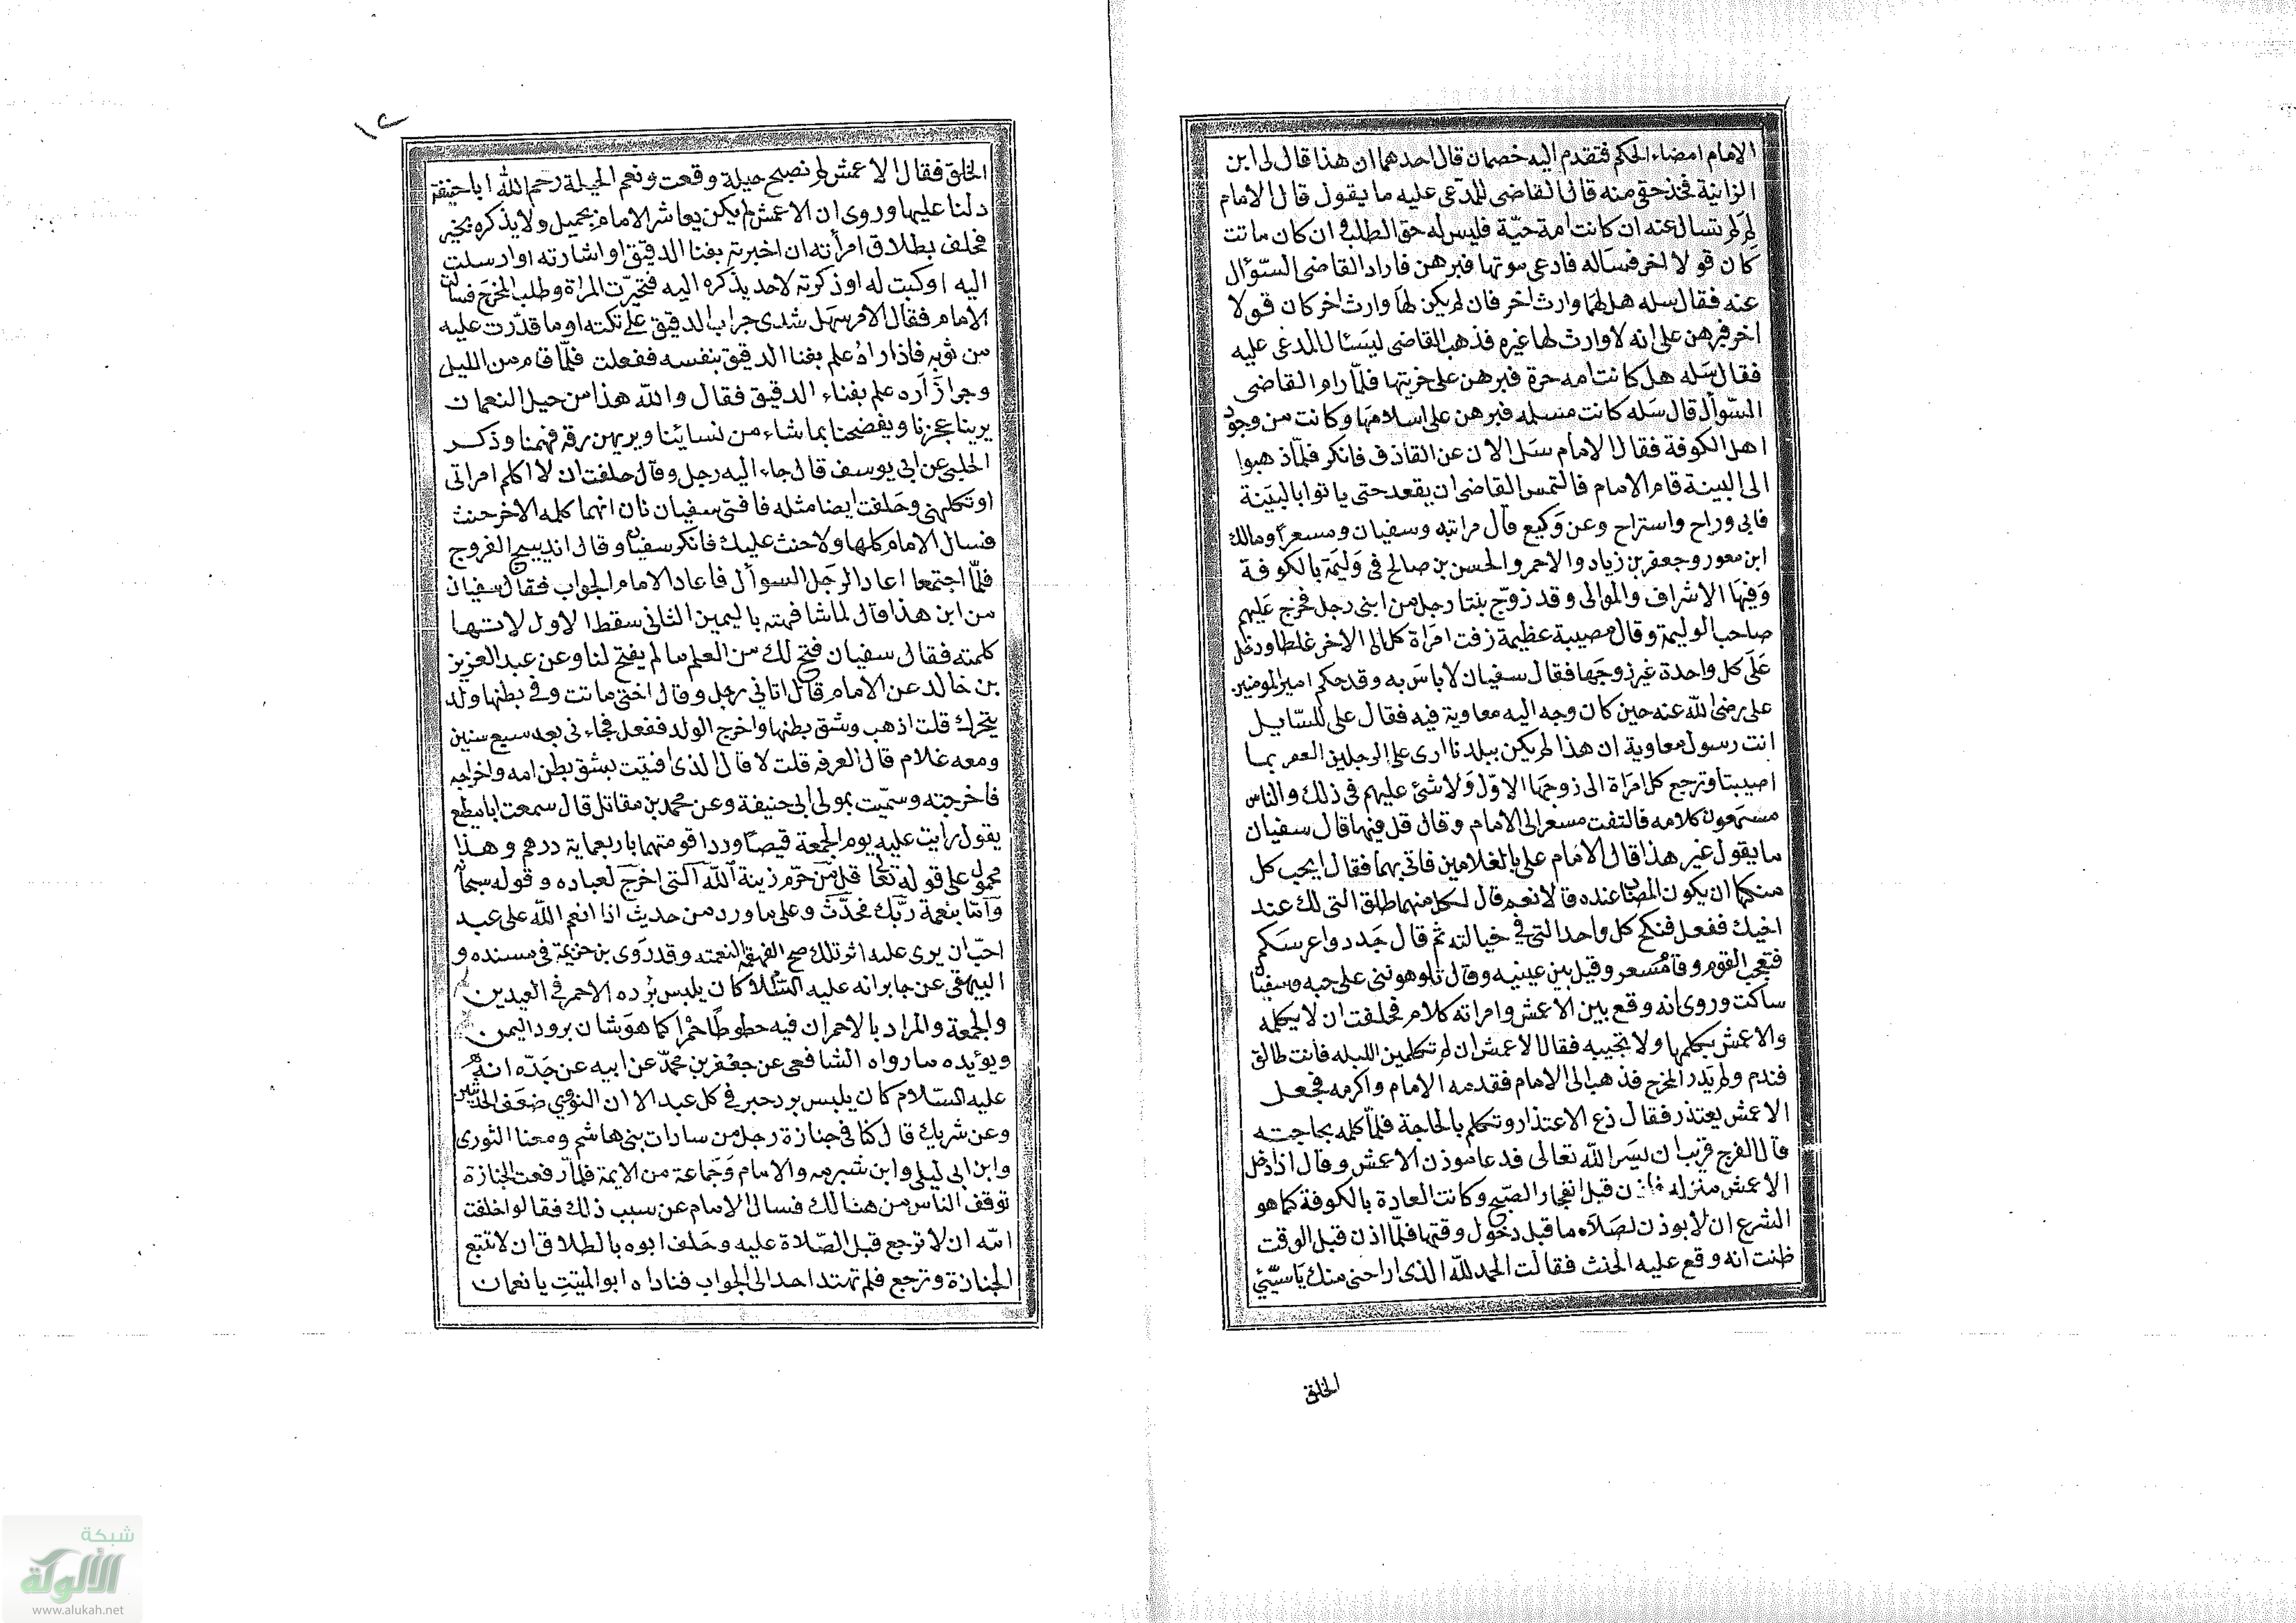 الامام امضاء الحكم فتقدم اليه خصمان قال احدهما ان هذا قال لى ابن
الزانية فخذ حقى منه قال القاضى للمدعى عليه ما يقول قال الامام
لم لم تسال عنه ان كانت امه حيّة فليس له حق الطلب و ان كان ماتت
كان قولا اخر فساله فادعى موتها فبرهن فاراد القاضى السّؤال
عنه فقال سله هل لها وارث اخر فان لم يكن لها وارث اخر كان قولا
اخر فبرهن على انه لا وارث لها غيره فذهب القاضى ليسئال المدعى عليه
فقال سَله هل كانت امه حرة فبرهن على حريتها فلمّا رام القاضى
السّوأل قال سَله كانت مسلمه فبرهن على اسلامها وكانت من وجوه
اهل الكوفة فقال الامام سَل الان عن القاذف فانكر فلمّا ذهبوا
الى البينة قام الامام فالتمس القاضى ان يقعد حتى ياتوا بالبيَنة
فابى وراح واستراح وعن وَكيع قال مراتبه وسفيان ومسعراً ومالك
ابن معور وجعفر بن زياد والاحمر والحسن بن صالح فى وَليمَة بالكوفة
وَفيهَا الاشراف والموالى وقد زوّج بنتا رجل من ابنى رجل فخرج عَليهم
صاحب الوليمة وقال مصيبة عظيمة زفت امرَاة كل الى الاخر غلطا ودخل
عَلَى كل واحدة غير زوجَها فقال سفيان لا باسَ به وقد حكم امير المومنين
على رضى الله عنه حين كان وجه اليه معاوية فيه فقال على للسّايل
انت رسول معاوية ان هذا لم يكن ببلدنا ارى على الرجلين العقر بما
اصيبتا وترجع كل امرَاة الى زوجهَا الاوّل وَلا شئ عليهم فى ذلك والناس
مستمعون كلامه فالتفت مسعر الى الامام وقال قل فيها قال سفيان
ما يقول غير هذا قال الامام على بالغلامين فاتى بهما فقال ايحب كل
منكما ان يكون المصاب عنده قالا نعم قال لكل منهما طلق التى لك عند
اخيك ففعل فنكح كل واحد التى فى خيالته ثم قال جَددوا عرسَكم
فتعجب القوم وقام مُسعر وقبل بين عينيه وقال تلوهوننى على حبه وسفيان
ساكت وروى انه وقع بين الاعمش وامراته كلام فحلفت ان لا يكلمه
والاعمش يكلمها ولا تجيبه فقال الاعمش ان لم تكلمين الليله فانت طالق
فندم ولم يَدر المخرج فذهب الى الامام فقدمه الامام واكرمه فجعل
الاعمش يعتذر فقال ذع الاعتذار وتكلم بالحاجة فلمّا كلمه بحاجته
قال الفرج قريب ان يسَر الله تعالى فدعا موذن الاعمش وقال اذا دخل
الاعمش منزله فاذن قبل انفجار الصّبح وكانت العادة بالكوفة كما هو
الشرع ان لا يوذن لصَلاه ما قبل دخول وقتها فلمّا اذن قبل الوقت
ظنت انه وقع عليه الحنث فقالت الحمد لله الذى اراحنى منك يا سيّئ
الخلق
١٢
الخلق فقال الاعمش لم نصبح حيلة وقعت ونعم الحيلة رحم الله اباحنيفة
دلنا عليها وروى ان الاعمش لم يكن يعاشر الامام بجميل ولا يذكره بخير
فحلف بطلاق امرأته ان اخبرته بفنا الدقيق او اشارته او ارسلت
اليه او كتبت له او ذكرته لاحد يذكره اليه فتحيّرت المراة وطلب المخرج فسالت
الامام فقال الامر سهَل شدى جراب الدقيق على تكته او ما قدّرت عليه
من ثوبه فاذا راهُ علم بفنا الدقيق بنفسه ففعلت فلمّا قام من الليل
وجرا زَاره علم بفناء الدقيق فقال والله هذا من حيل النعمان
يرينا عجزنا ويفضحنا بما شاء من نسائنا ويريهن رقة فهمنا وذكر
الحلبى عن ابى يوسف قال جاء اليه رجل وقال حلفت ان لا اكلم امراتى
او تكلمنى وحَلفت ايضا مثله فافتى سفيان نان انهما كلمه الاخر حنث
فسال الامام كلمها ولا حنث عليك فانكر سفيان وقال انه يبيح الفروج
فلمّا اجتمعا اعاد الرجَل السوأل فاعاد الامام الجواب فقال سفيان
من اين هذا قال لما شافهته باليمين الثانى سقط الاول لانها
كلمته فقال سفيان فتح لك من العلم ما لم يفتح لنا وعن عبد العزيز
بن خالد عن الامام قال اتانى رجل وقال اختى ماتت وفى بطنها ولد
يتحرك قلت اذهب وشق بطنها واخرج الولد ففعل فجاء نى بعد سبع سنين
ومعه غلام قال العرفه قلت لا قال الذى افتيت بشق بطن امه واخراجه
فاخرجته وسمّيت بمولى ابى حنيفة وعن محمد بن مقاتل قال سمعت ابا مطع
يقول رايت عليه يوم الجمعة قيصًا وردا قومتهما باربعماية درهم وهذا
محمول على قوله تعَالى قل من حرّم زينة الله التى اخرج لعباده وقوله سبحانه
وَامّا بنعمة ربّك فحدّث وعلى ما ورد من حديث اذا انعم الله على عبد
احبّ ان يرى عليه اثر تلك النعمته وقد روَى بن خزيمَة فى مسنده و
البيهقى عن جابر انه عليه السّلام كان يلبس بُرده الاحمر فى العيدين
والجمعة والمراد بالاحمر ان فيه خطوطًا حمْرا كما هوَ شان برود اليمن
ويؤيده ما رواه الشافعى عن جعْفر بن محمّد عن ابيه عن جَدّه انه
عليه السّلام كان يلبس برد حبر فى كل عيد الا ان النووى ضعَف الحديثين
وعن شريك قال كنا فى جنازة رجل من سادات بنى هاشم ومعنا الثورى
وابن ابى ليلى وابن شبرمه والامام وَجَماعة من الايمة فلمّا رفعت الجنازة
توقف الناس من هنالك فسال الامام عن سبب ذلك فقالوا حلفت
امّه ان لا ترجع قبل الصّلاة عليه وحَلف ابوه بالطلاق ان لا تتبع
الجنازة وترجع فلم تهتد احد الى الجواب فناداه ابو الميّتِ يا نعمان
شبكة
الألوكة
www.alukah.net